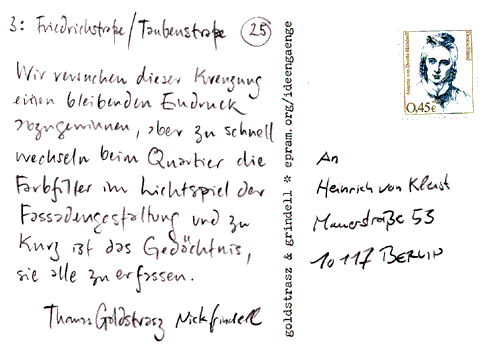 3: Friedrichstraße/Taubenstraße 25
Wir versuchen dieser Kreuzung
einen bleibenden Eindruck
abzugewinnen, aber zu schnell
wechseln beim Quartier die
Farbfilter im Lichtspiel der
Fassadengestaltung und zu
kurz ist das Gedächtnis,
sie alle zu erfassen.
Thomas Goldstrasz Nick Grindell
goldstrasz & grindell * epram.org/ideengaenge
Deutschland
0,45€
An
Heinrich von Kleist
Mauerstraße 53
10117 BERLIN